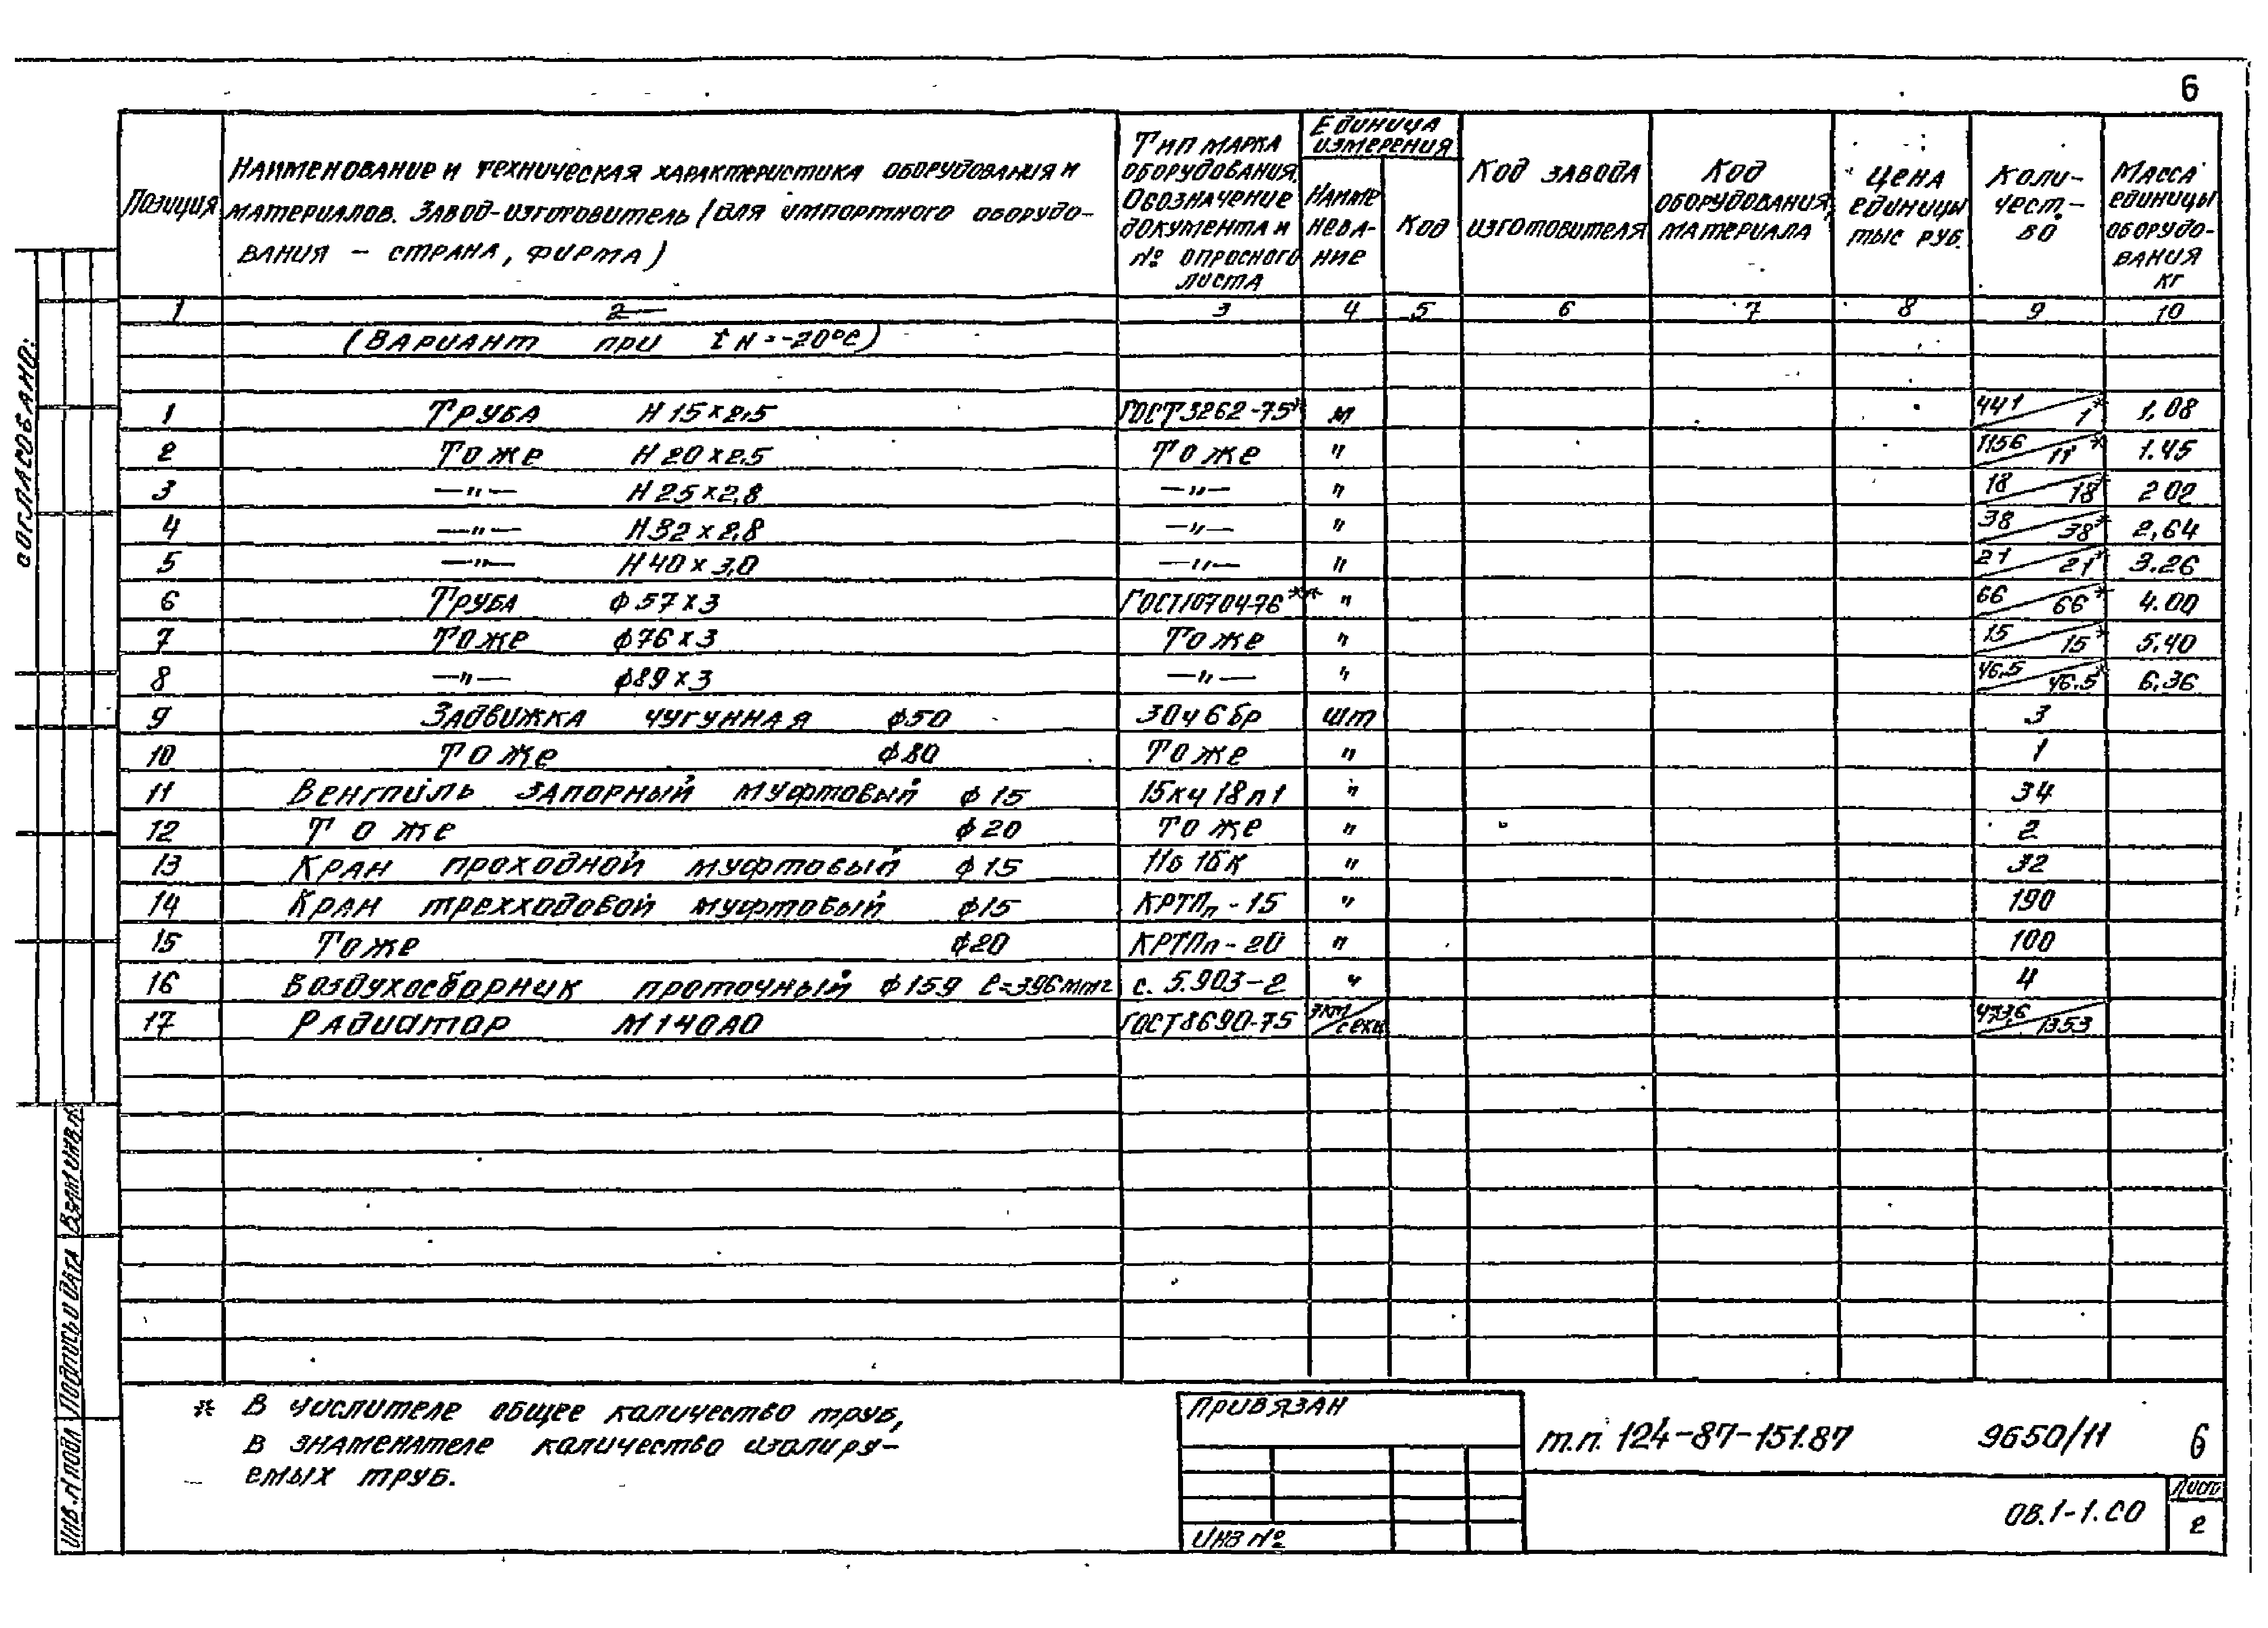 6
Позиция
Наименование и техническая характеристика оборудования и
материалов. Завод-изготовитель (для импортного оборудо-
вания – страна, фирма)
Тип марка
оборудования,
Обозначение
документа и
№ опросного
листа
Единица
измерения
Наиме
нева-
ние
Код
Код завода
изготовителя
Код
оборудования,
материала
Цена
единицы
тыс руб.
Коли-
чест-
во
Масса
единицы
оборудо-
вания
кг
1 2 3 4 5 6 7 8 9 10
(Вариант при tн=-20°С)
1 Труба Н 15×2,5 ГОСТ 3262-75* м 441/1* 1,08
2 Тоже Н 20×2,5 Тоже " 1156/11* 1.45
3 —"— Н 25×2,8 —"— " 18/18* 2 02
4 —"— Н 32×2,8 —"— " 38/38* 2,64
5 —"— Н 40×3,0 —"— " 21/21* 3.26
6 Труба ф 57×3 ГОСТ10704-76** " 66/66* 4.00
7 Тоже ф76×3 Тоже " 15/15* 5.40
8 —"— ф89×3 —"— " 46.5/46.5* 6,36
9 Задвижка чугунная ф50 30ч 6 бр шт 3
10 Тоже ф80 Тоже " 1
11 Вентиль запорный муфтовый ф 15 15кч 18п1 " 34
12 Тоже ф20 Тоже " 2
13 Кран проходной муфтовый ф 15 11б 1бк " 32
14 Кран трехходовой муфтовый ф15 КРТПп - 15 " 190
15 Тоже ф20 КРТПп - 20 " 100
16 Воздухосборник проточный ф 159 ℓ=396мм с. 5.903-2 " 4
17 Радиатор М140АО ГОСТ8690-75 экм/секц 473,6/1353
* В числителе общее количество труб,
в знаменателе количество изолиру-
емых труб.
Привязан
Инв №
т.п. 124-87-151.87 9650/11 6
ОВ.1-1.СО
Лист
2
Согласовано:
Взам инв.№
Подпись и дата
Инв.№ подл